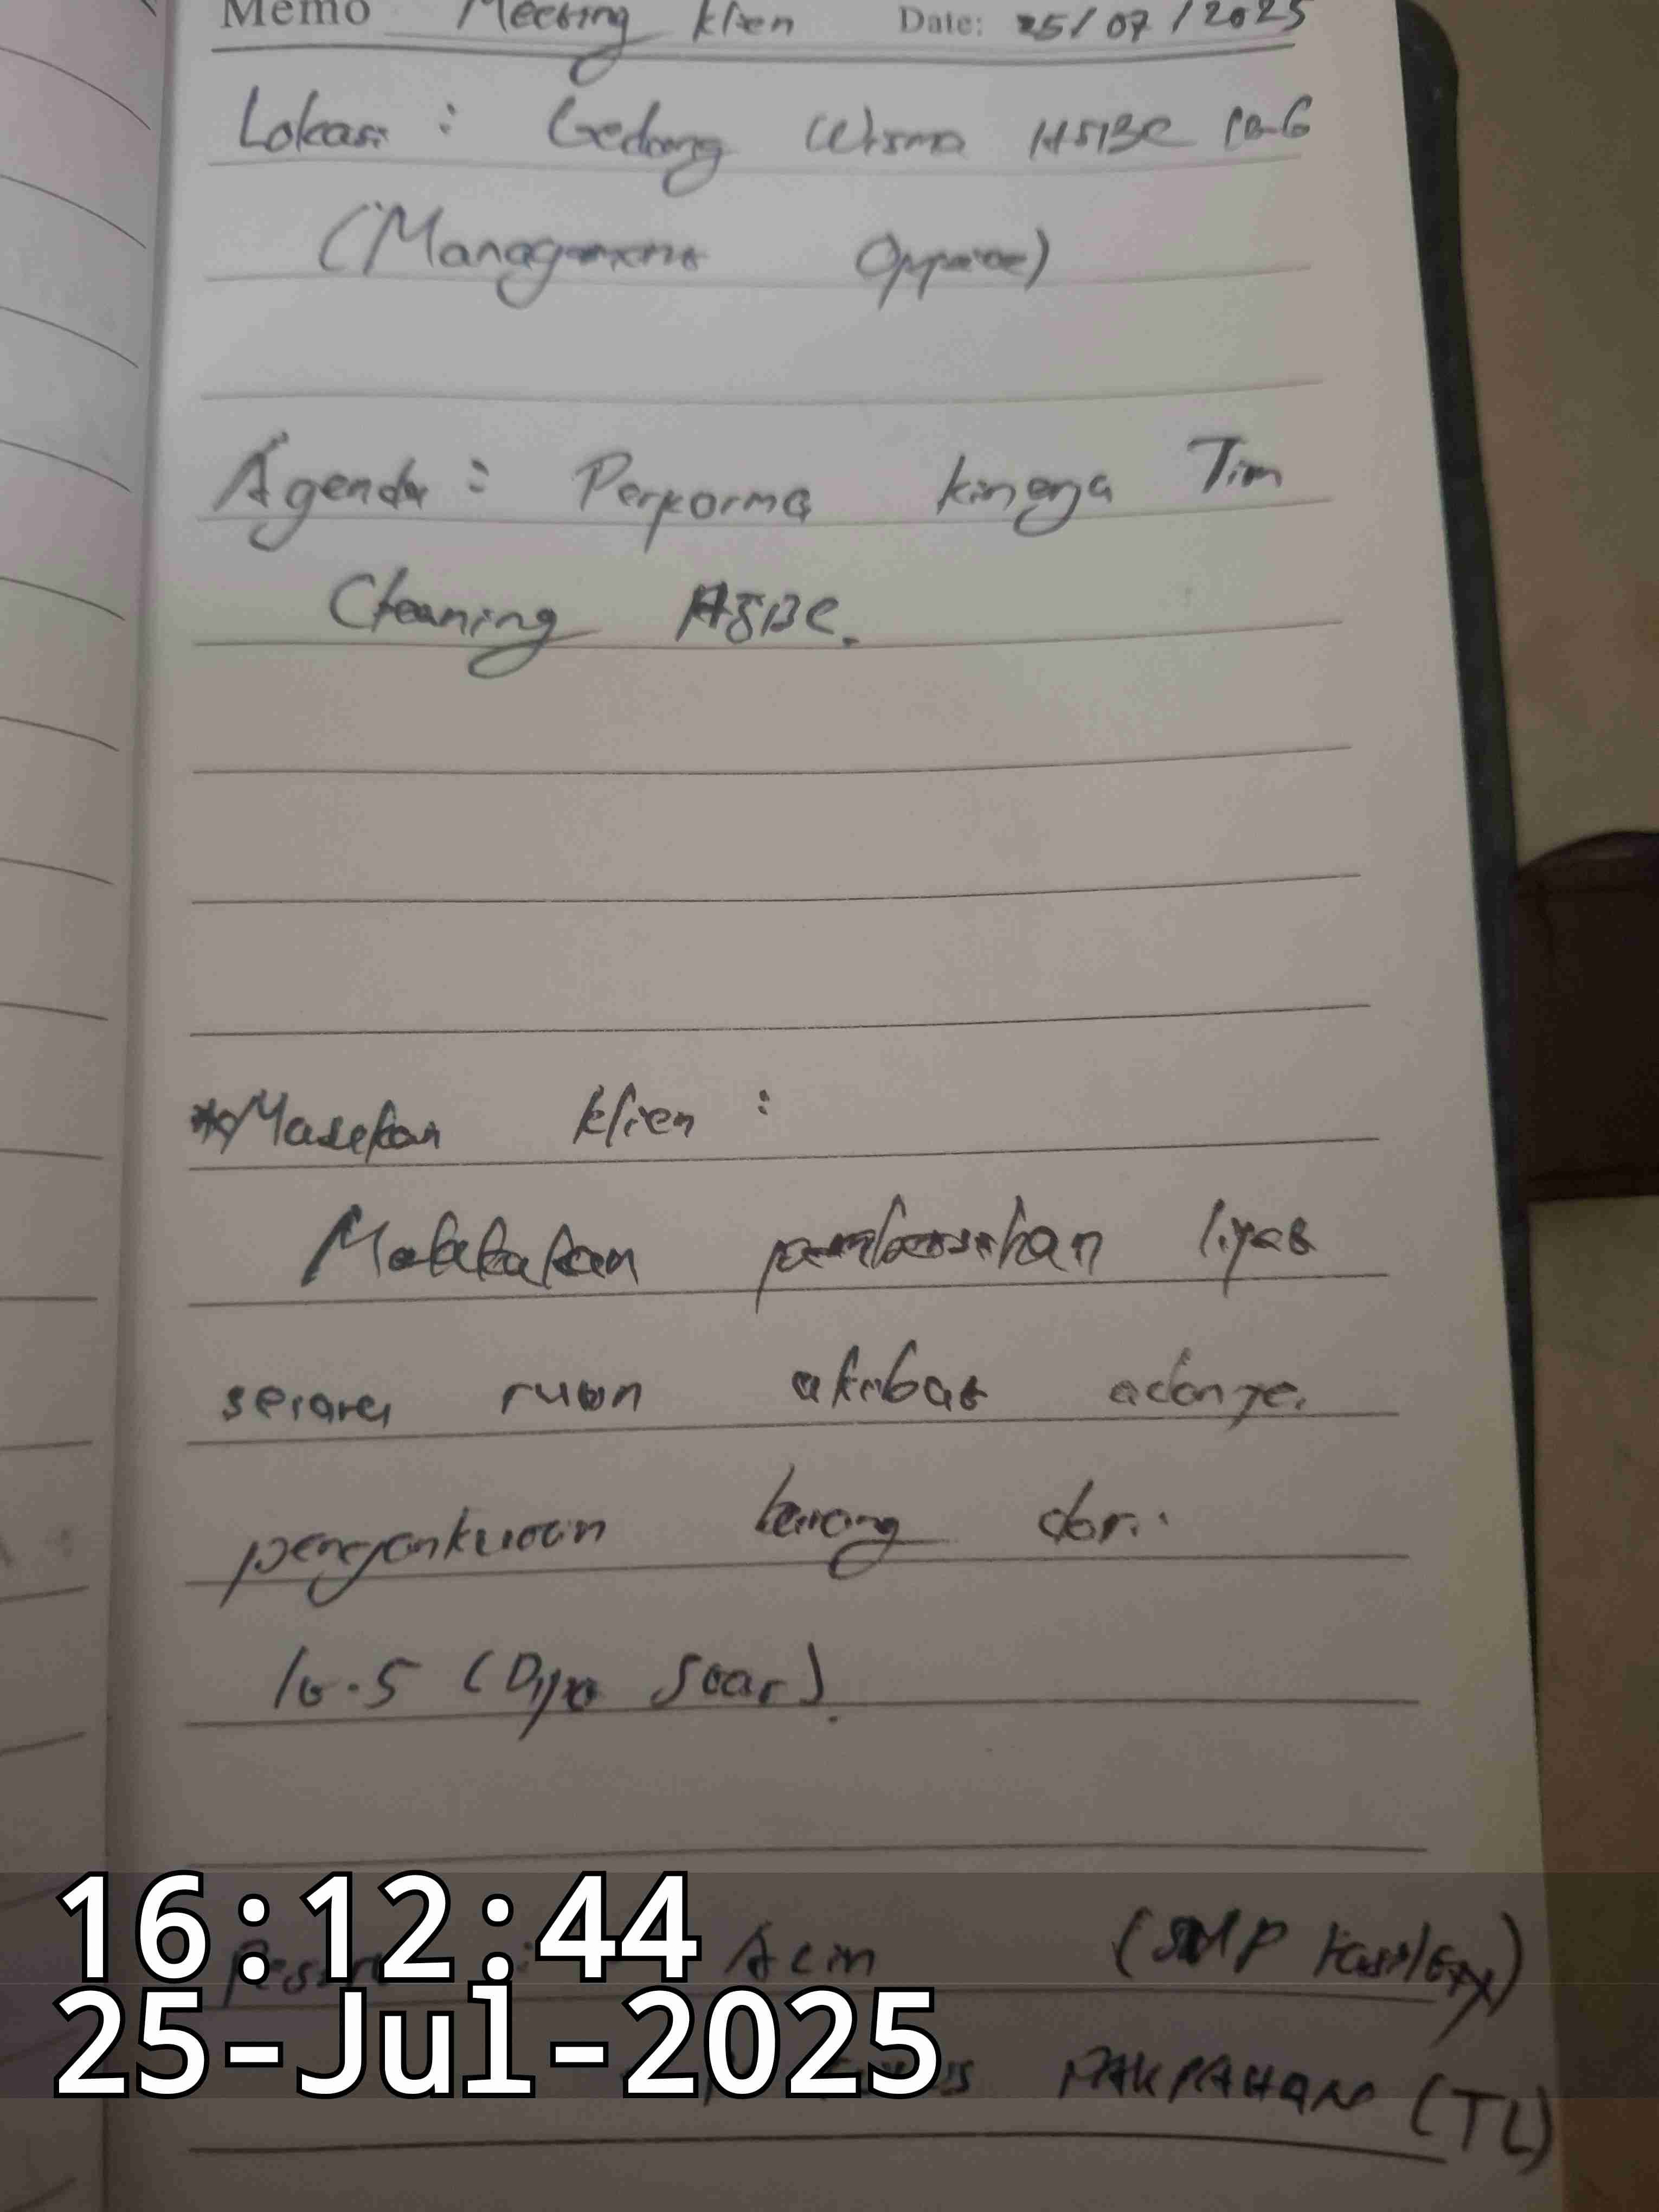 Memo Meeting klien Date: 25/07/2025
Lokasi : Gedung Wisma HSBC
(Management
Agenda : Performa kinerja Tim
Cleaning HSBC.
*Masukan klien :
Melakukan pembersihan
secara rutin akibat adanya
barang dari
(Dipo Soar).
Acin (SMP
PAKPAHAN (TL)
16:12:44
25-Jul-2025